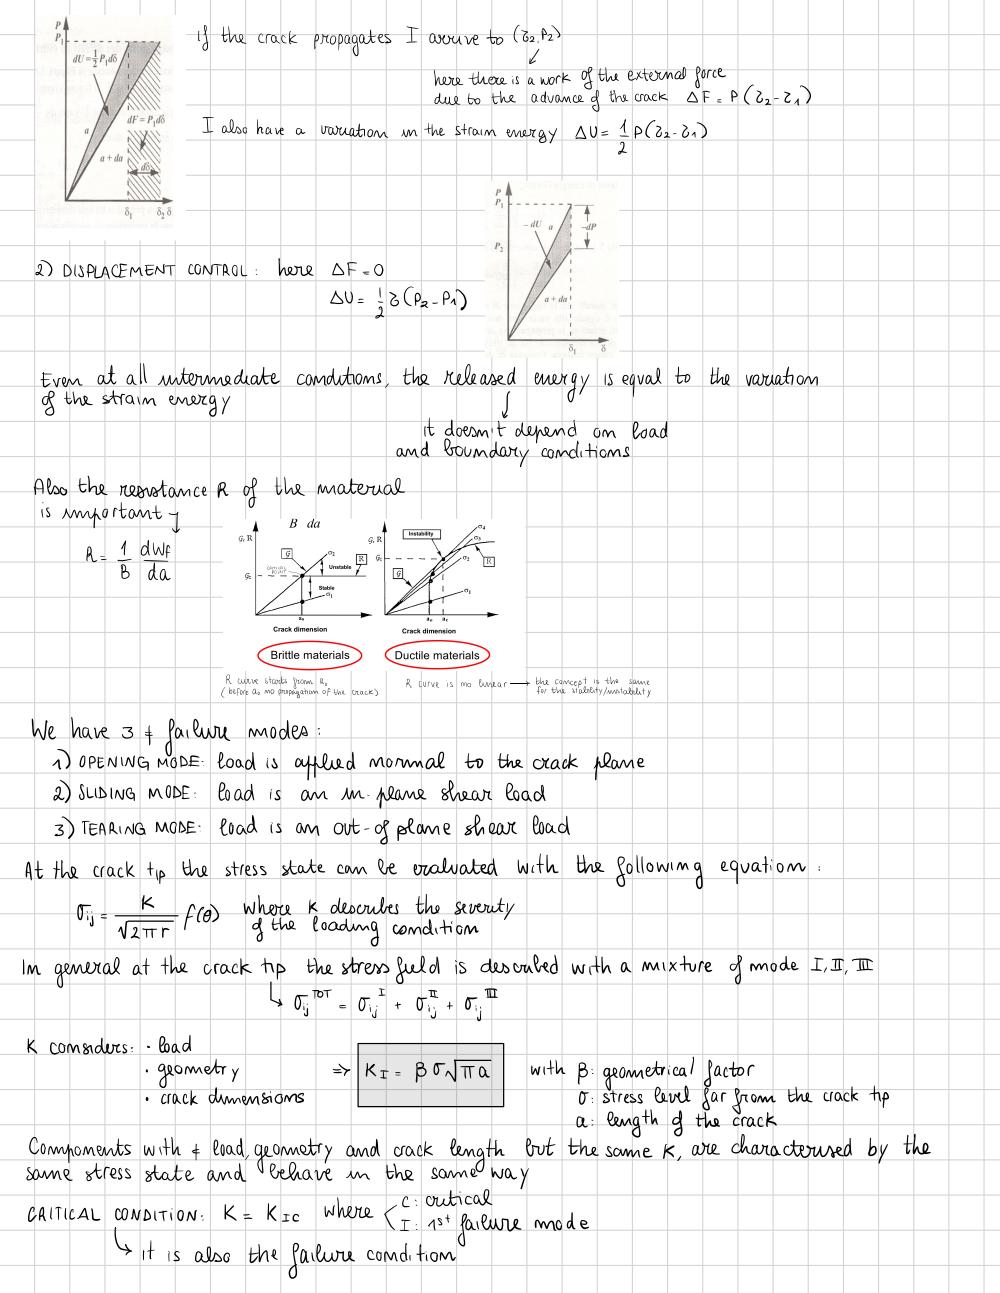 P
P₁
dU=½P₁dδ
a
dF = P₁dδ
a + da
dδ
δ₁ δ₂ δ
If the crack propagates I arrive to (δ₂,P₂)
here there is a work of the external force
due to the advance of the crack ΔF = P(δ₂-δ₁)
I also have a variation in the strain energy ΔU = 1/2 P(δ₂-δ₁)
P
P₁
- dU a
-dP
P₂
a + da
δ₁ δ
2) DISPLACEMENT CONTROL: here ΔF = 0
ΔU = 1/2 δ(P₂-P₁)
Even at all intermediate conditions, the released energy is equal to the variation
of the strain energy
it doesn't depend on load
and boundary conditions
Also the resistance R of the material
is important
R = 1/B dWf/da
B da
G, R
G
σ₂
CRITICAL POINT
R
Gc
Unstable
Stable
σ₁
a₀
Crack dimension
Brittle materials
G, R
Instability
σ₄
σ₃
σ₂
R
Gc
G
σ₁
a₀ a_c
Crack dimension
Ductile materials
R curve starts from a₀
(before a₀ no propagation of the crack)
R curve is no linear → the concept is the same
for the stability/instability
We have 3 ≠ failure modes:
1) OPENING MODE: load is applied normal to the crack plane
2) SLIDING MODE: load is an in-plane shear load
3) TEARING MODE: load is an out-of plane shear load
At the crack tip the stress state can be evaluated with the following equation:
σij = K/√2πr f(θ) where K describes the severity
of the loading condition
In general at the crack tip the stress field is described with a mixture of mode I, II, III
↳ σij^TOT = σij^I + σij^II + σij^III
K considers: • load
• geometry
• crack dimensions
⇒ K_I = βσ√πa
with β: geometrical factor
σ: stress level far from the crack tip
a: length of the crack
Components with ≠ load, geometry and crack length but the same K, are characterised by the
same stress state and behave in the same way
CRITICAL CONDITION: K = K_IC where C: critical
I: 1st failure mode
↳ it is also the failure condition